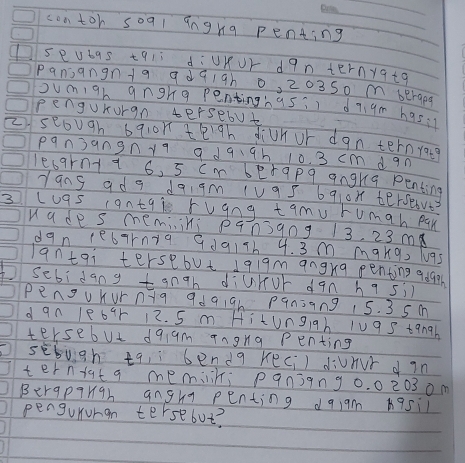 contoh soal angka penting
1 seutas tali diukur dan ternyata
panjangnya adalah 0,20350 m berapa
jumlah angka penting hasil dalam hasil
pengukuran tersebut
2. sebuah balok telah diukur dan ternyata
panjangnya adalah 10.3 cm dan
lebarnya 6,5 cm berapa angka penting
yang ada dalam luas balok tersebut?
3 Luas lantai ruang tamu rumah pak
kades memiliki panjang 13.23 m
dan lebarnya adalah 4.3 m maka, luas
lantai tersebut dalam angka penting adalah
4. sebidang tanah diukur dan hasil
pengukurnya adalah panjang 15.35 m
dan lebar 12.5 m Hitunglah luas tanah
tersebut dalam angka penting
5 sebuah tali benda kecil diukur dan
ternyata memiliki panjang 0.02030 m
Berapakah angka penting dalam hasil
pengukuran tersebut?